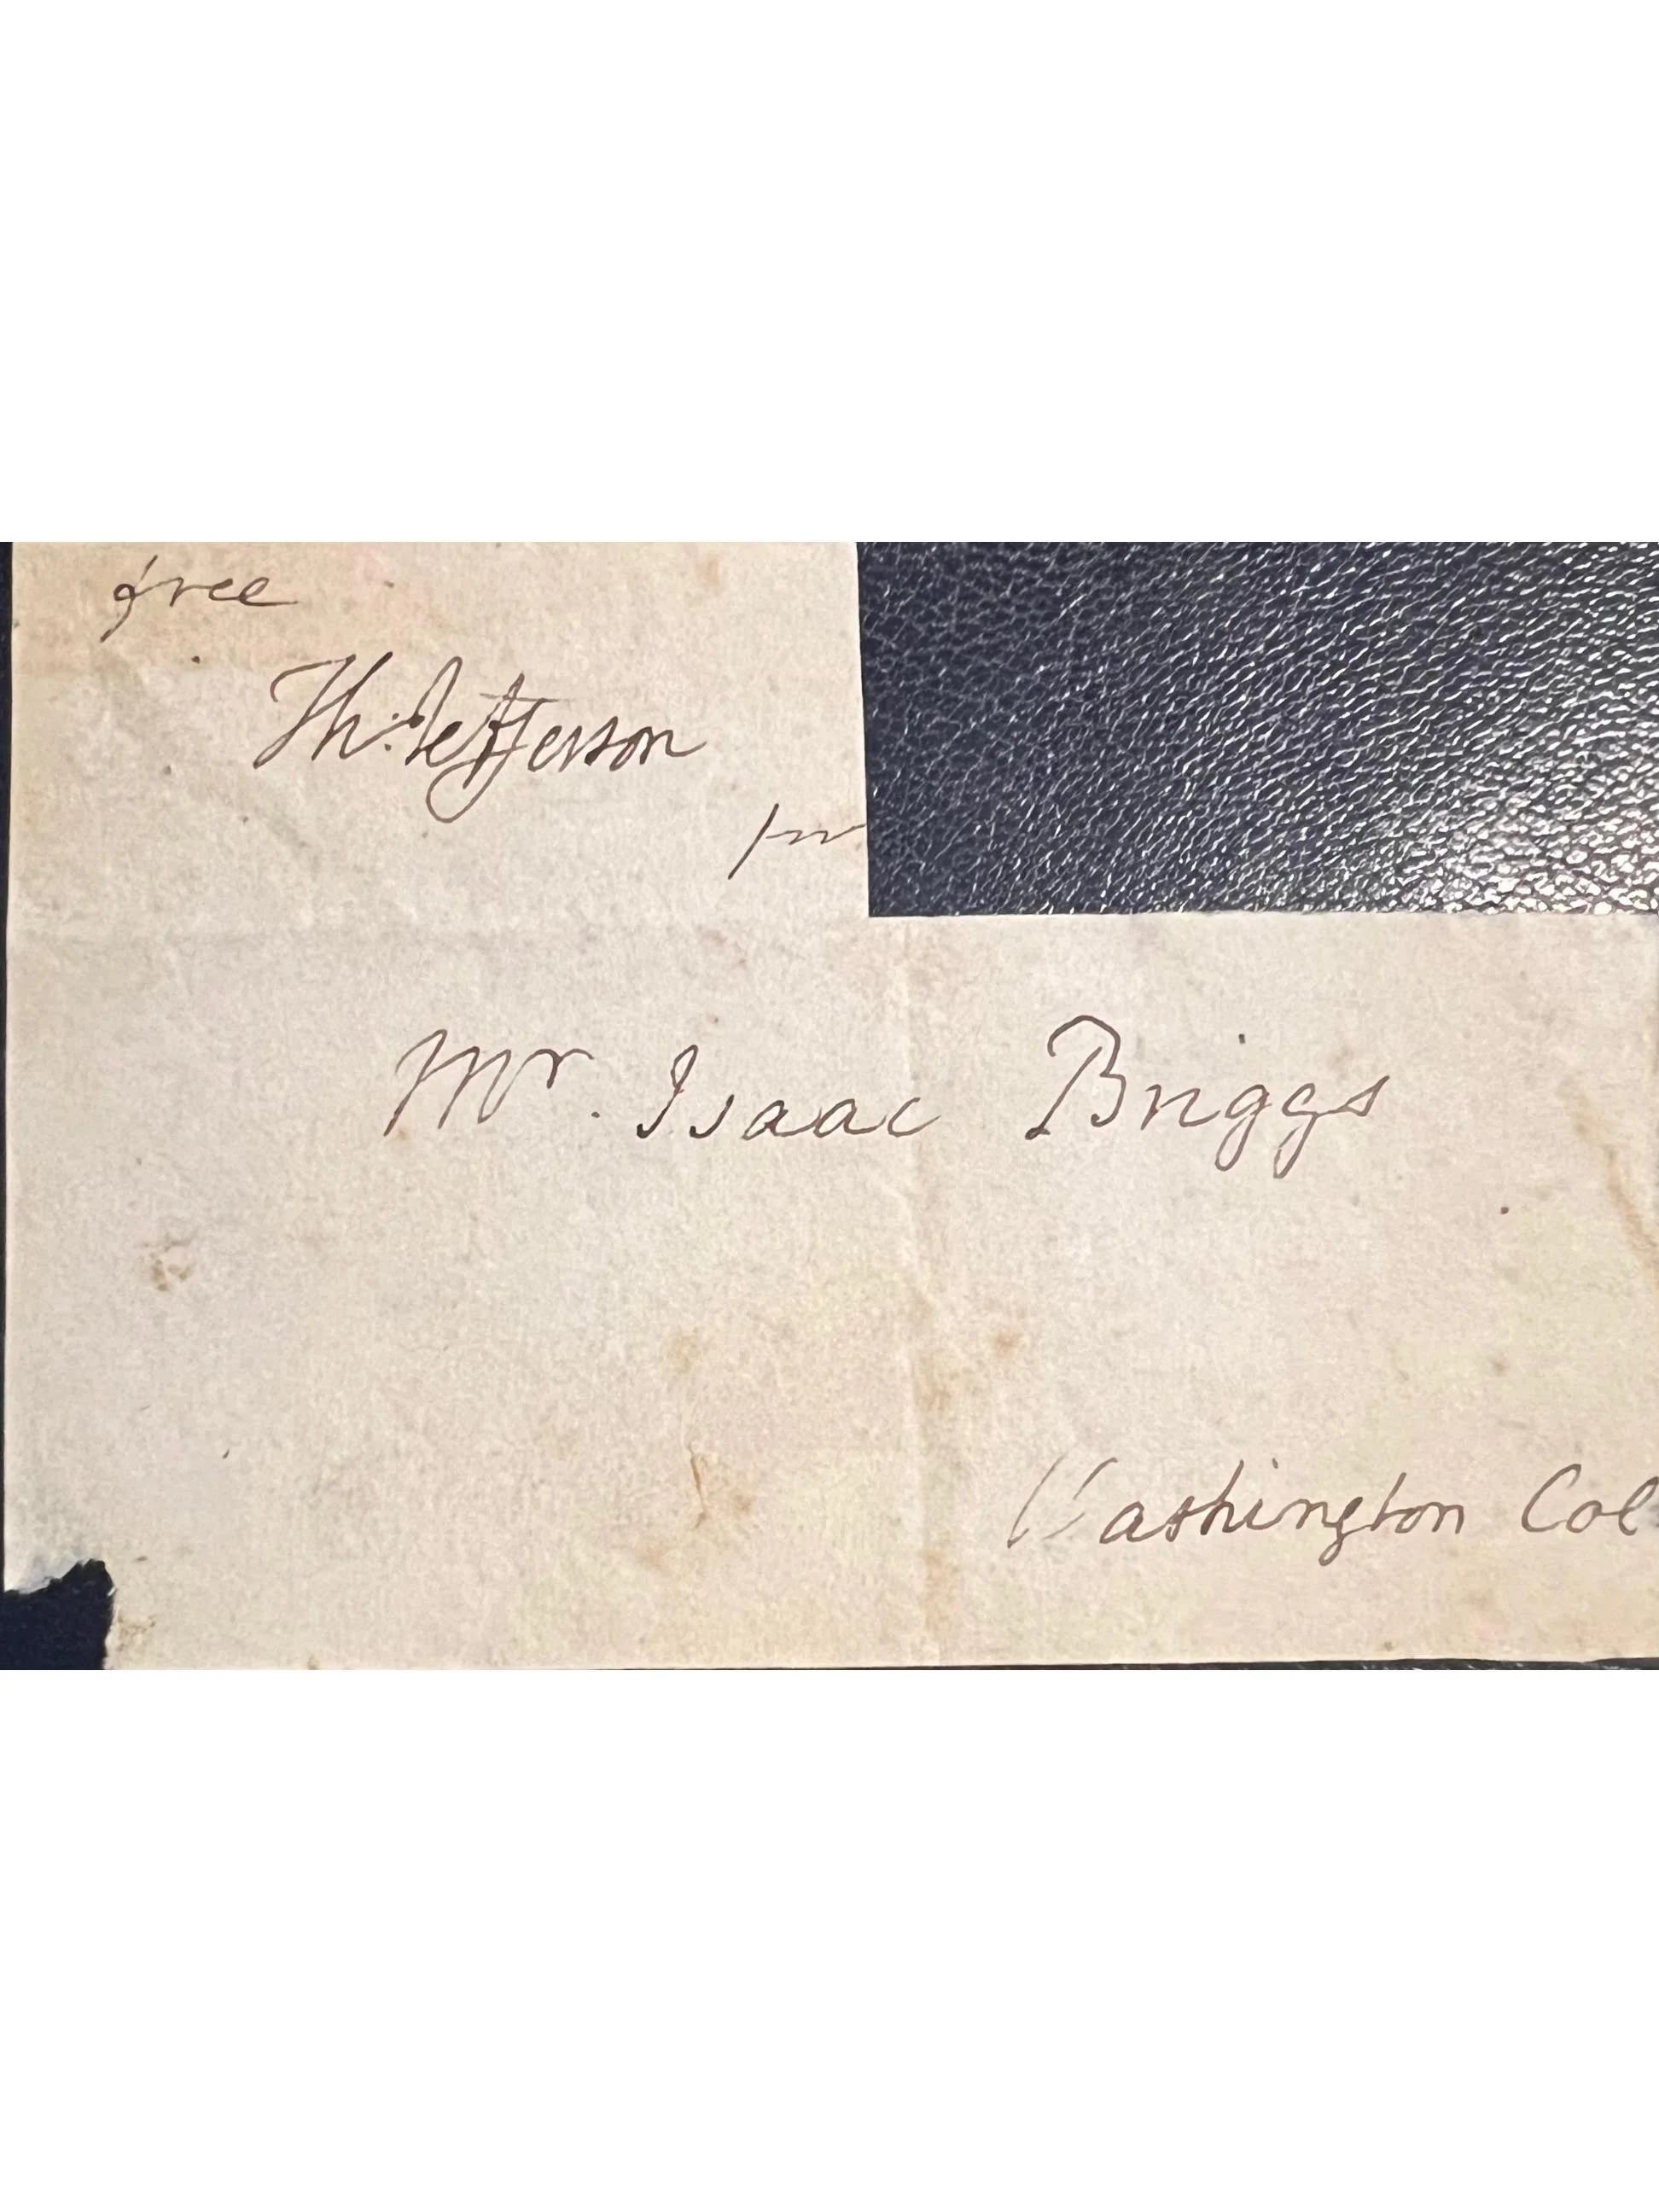 free
Th: Jefferson
Mr. Isaac Briggs
Washington Col